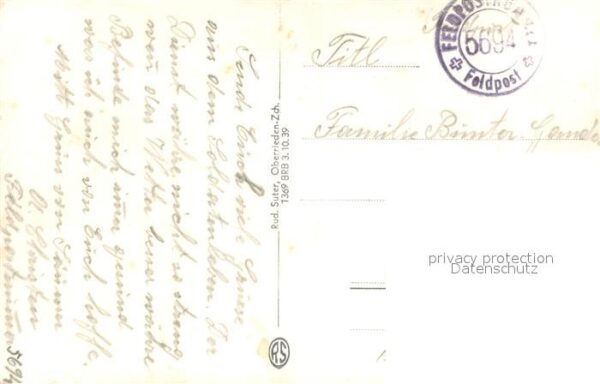 Sende Euch viele Grüsse
aus dem Soldatenleben. Der
Dienst wäre nicht so streng
wen das Wetter besser wäre
Befinde mich immer gesund
was ich auch von Euch hoffe.
Mitt Gruss von
Feldpostnummer 5694
Rud. Suter, Oberrieden-Zch.
1369 BRB 3.10.39
RS
Titl
Familie Bünter
FELDPOST
5694
Feldpost
privacy protection
Datenschutz